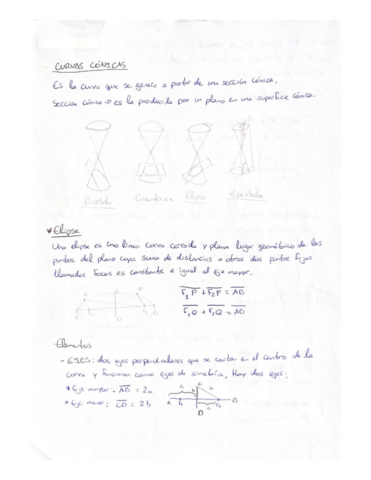 CURVAS CÓNICAS
Es la curva que se genera a partir de una sección cónica.
Sección cónica → es la producida por un plano en una superficie cónica.
Parábola Circunferencia Elipse Hipérbola
* Elipse
Una elipse es una línea curva cerrada y plana lugar geométrico de los
puntos del plano cuya suma de distancias a otros dos puntos fijos
llamados focos es constante e igual al eje mayor.
F₁P + F₂P = AB
F₁Q + F₂Q = AB
- Elementos
- EJES: dos ejes perpendiculares que se cortan en el centro de la
curva y funcionan como ejes de simetría. Hay dos ejes:
* Eje mayor: AB = 2a
* Eje menor: CD = 2b